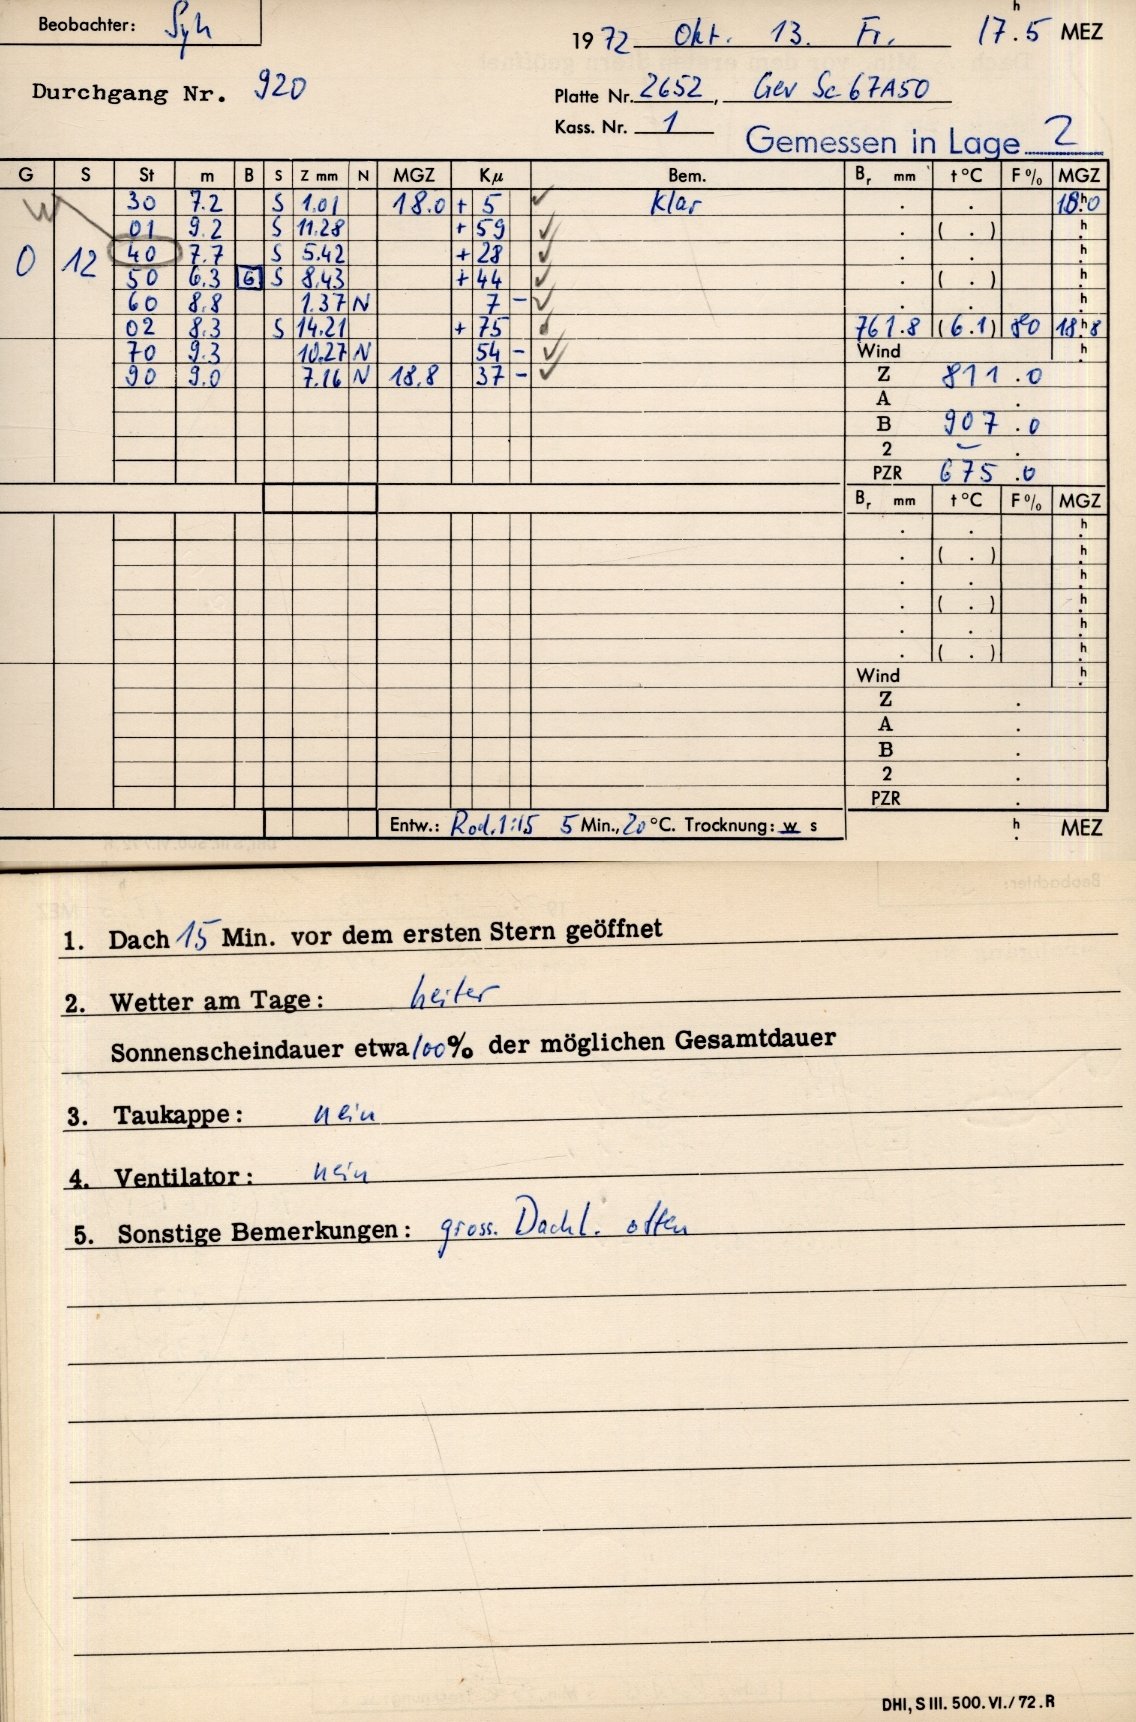 Beobachter: Syh
1972 Okt. 13. Fr. 17.5 h MEZ
Durchgang Nr. 920
Platte Nr. 2652, Gev Sc 67A50
Kass. Nr. 1
Gemessen in Lage 2
G S St m B S Z mm N MGZ Kμ Bem. Br mm t °C F % MGZ
W 30 7.2 S 1.01 18.0 + 5 ✓ klar . . 18.h0
01 9.2 S 11.28 + 59 ✓ . ( . ) h
0 12 40 7.7 S 5.42 + 28 ✓ . . h
50 6.3 6 S 8.43 + 44 ✓ . ( . ) h
60 8.8 1.37 N 7 - ✓ . . h
02 8.3 S 14.21 + 75 761.8 (6.1) 80 18.h8
70 9.3 10.27 N 54 - ✓ Wind h
90 9.0 7.16 N 18.8 37 - ✓ Z 811.0
A .
B 907.0
2 - .
PZR 675.0
Br mm t °C F % MGZ
. . h
. ( . ) h
. . h
. ( . ) h
. . h
. ( . ) h
Wind h
Z .
A .
B .
2 .
PZR .
Entw.: Rod. 1:15 5 Min., 20 °C. Trocknung: w s h MEZ
1. Dach 15 Min. vor dem ersten Stern geöffnet
2. Wetter am Tage: heiter
Sonnenscheindauer etwa 100% der möglichen Gesamtdauer
3. Taukappe: nein
4. Ventilator: nein
5. Sonstige Bemerkungen: gross. Dachl. offen
DHI, S III. 500. VI./72. R